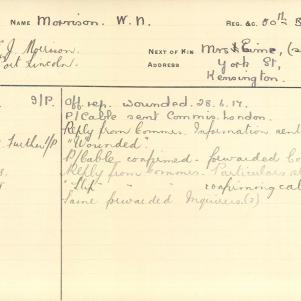 NAME Morrison. W. N. REG. &C. 50th B
J Morrison NEXT OF KIN Mrs Laine, (s
Port Lincoln. ADDRESS York St,
Kensington.
9/P. Off. rep. wounded. 28.6.17.
P/Cable sent Commis. London.
Reply from Commr. Information sent
Further I/P "Wounded".
P/Cable confirmed - forwarded Co
Reply from Commr. Particulars
"Slip" " " confirming cabl
Same forwarded Inquirers.(2)